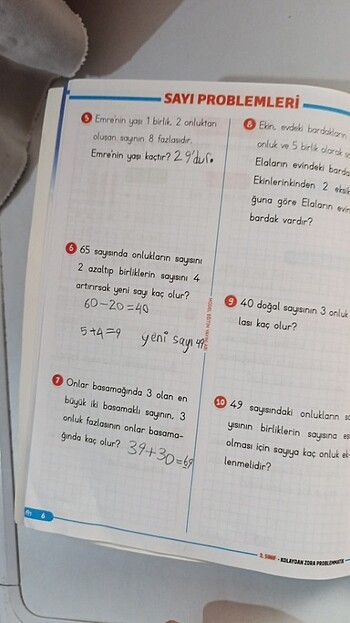 SAYI PROBLEMLERİ
5 Emre'nin yaşı 1 birlik, 2 onluktan
oluşan sayının 8 fazlasıdır.
Emre'nin yaşı kaçtır? 29'dur.
6 65 sayısında onlukların sayısını
2 azaltıp birliklerin sayısını 4
artırırsak yeni sayı kaç olur?
60-20=40
5+4=9 yeni sayı 49
7 Onlar basamağında 3 olan en
büyük iki basamaklı sayının, 3
onluk fazlasının onlar basama-
ğında kaç olur? 39+30=69
6
8 Ekin, evdeki bardakların
onluk ve 5 birlik olarak
Elaların evindeki
Ekinlerinkinden 2
ğuna göre Elaların
bardak vardır?
9 40 doğal sayısının 3 onluk
lası kaç olur?
10 49 sayısındaki onlukların
yısının birliklerin sayısına
olması için sayıya kaç onluk ek-
lenmelidir?
3. SINIF - KOLAYDAN ZORA PROBLEMMATİK